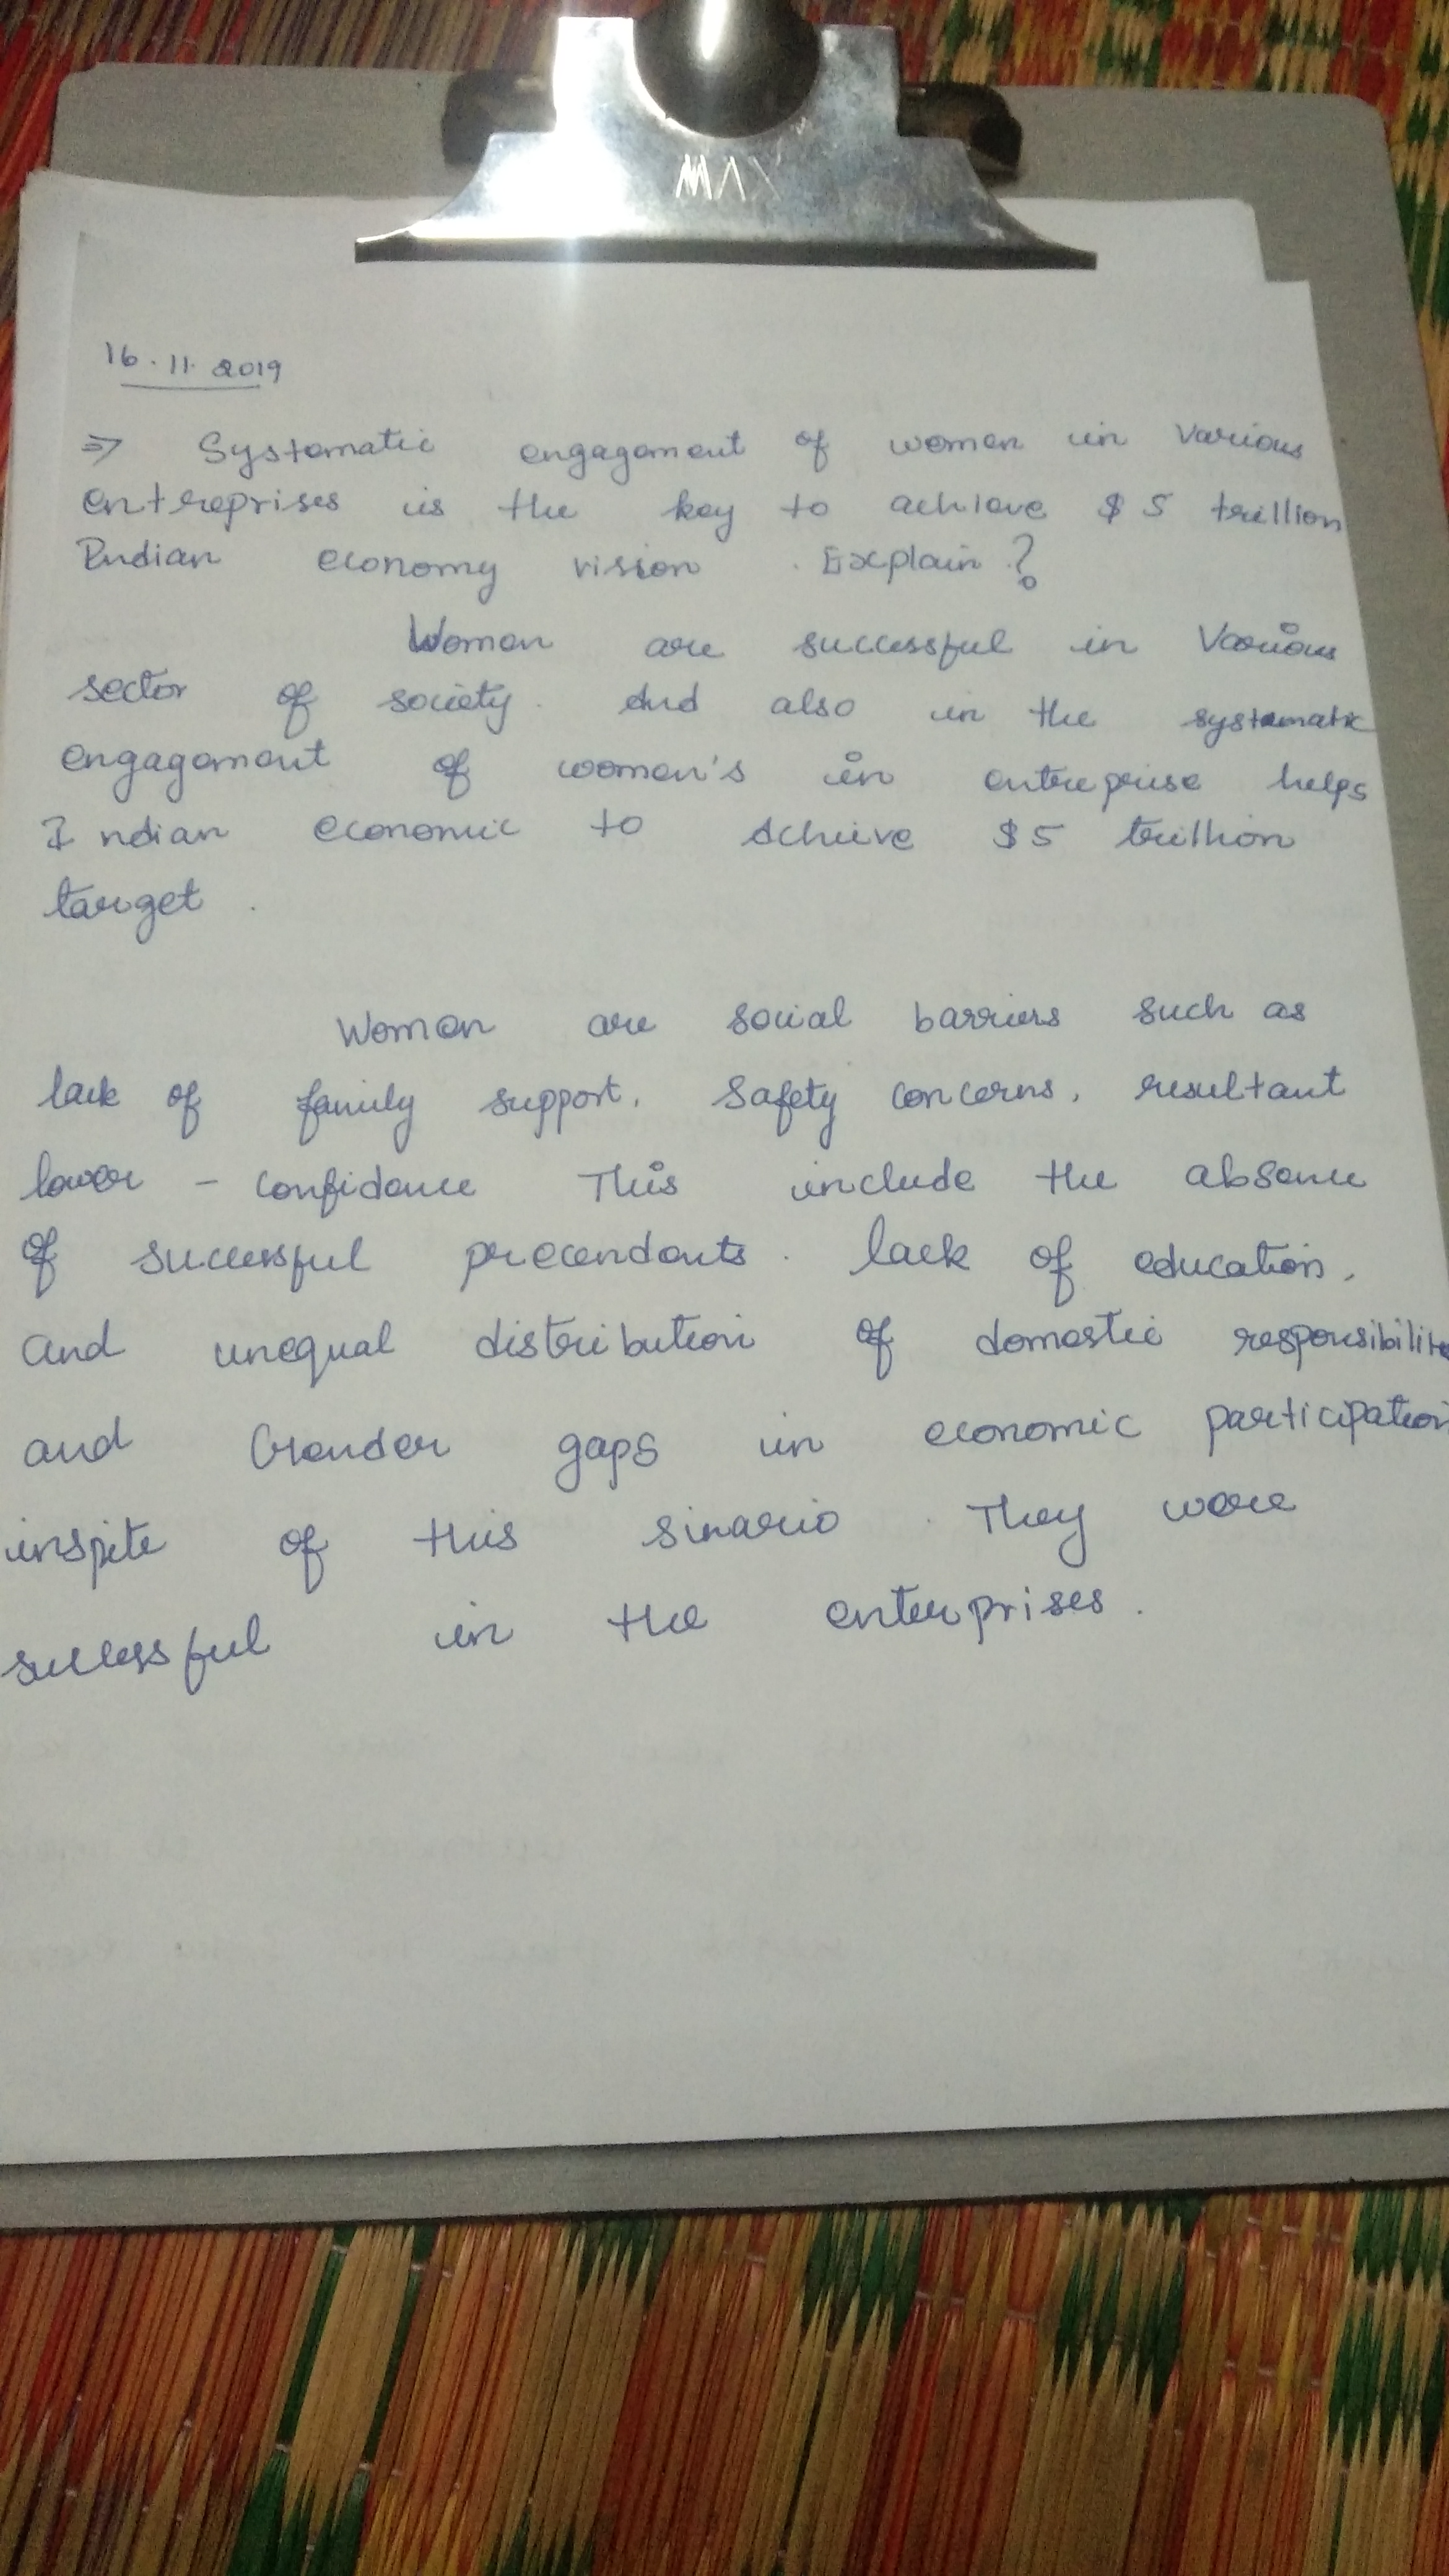 MAX
16.11.2019
⇒ Systematic engagement of women in various
entreprises is the key to achieve $5 trillion
Indian economy vision. Explain?
Women are successful in Various
sector of society. And also in the systematic
engagement of women's in entreprise helps
Indian economic to Achieve $5 trillion
target.
Women are social barriers such as
lack of family support, Safety concerns, resultant
lower - confidence This include the absence
of successful precendents. lack of education,
and unequal distribution of domestic responsibilities
and Gender gaps in economic participation
inspite of this sinario. They were
successful in the enterprises.